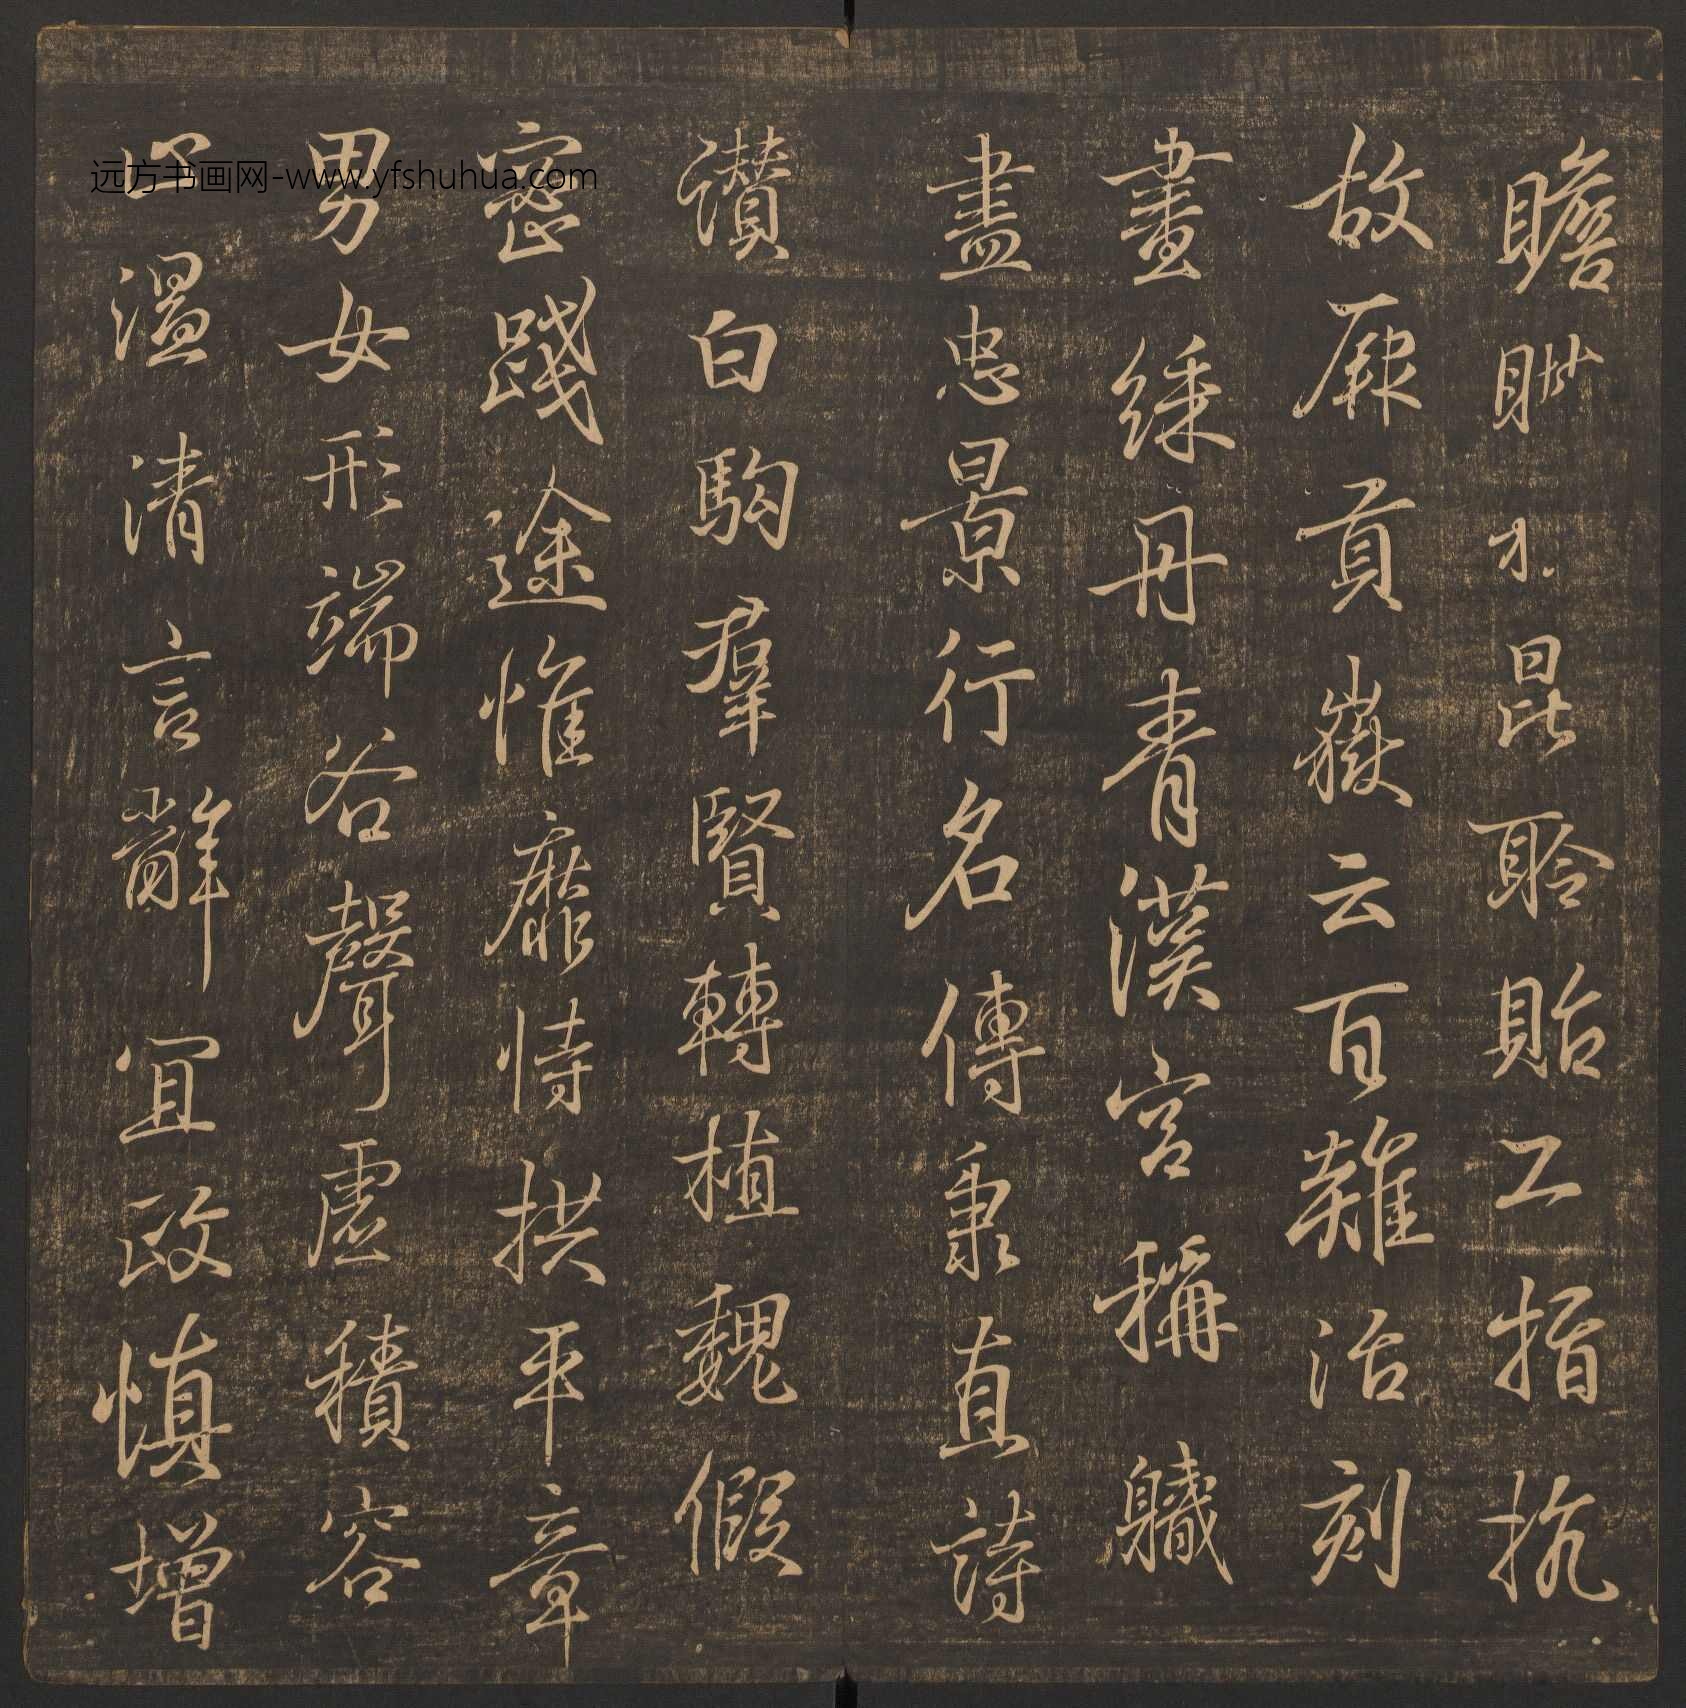 瞻才昆聆貽工指抗
故厥貢嶽云百難活刻
畫綵丹青漢宮稱軄
盡忠景行名傳秉直詩
讚白駒羣賢轉植魏假
密踐途惟靡恃拱平章
男女形端谷聲虛積容
止溫清言辭宜政慎增
远方书画网-www.yfshuhua.com